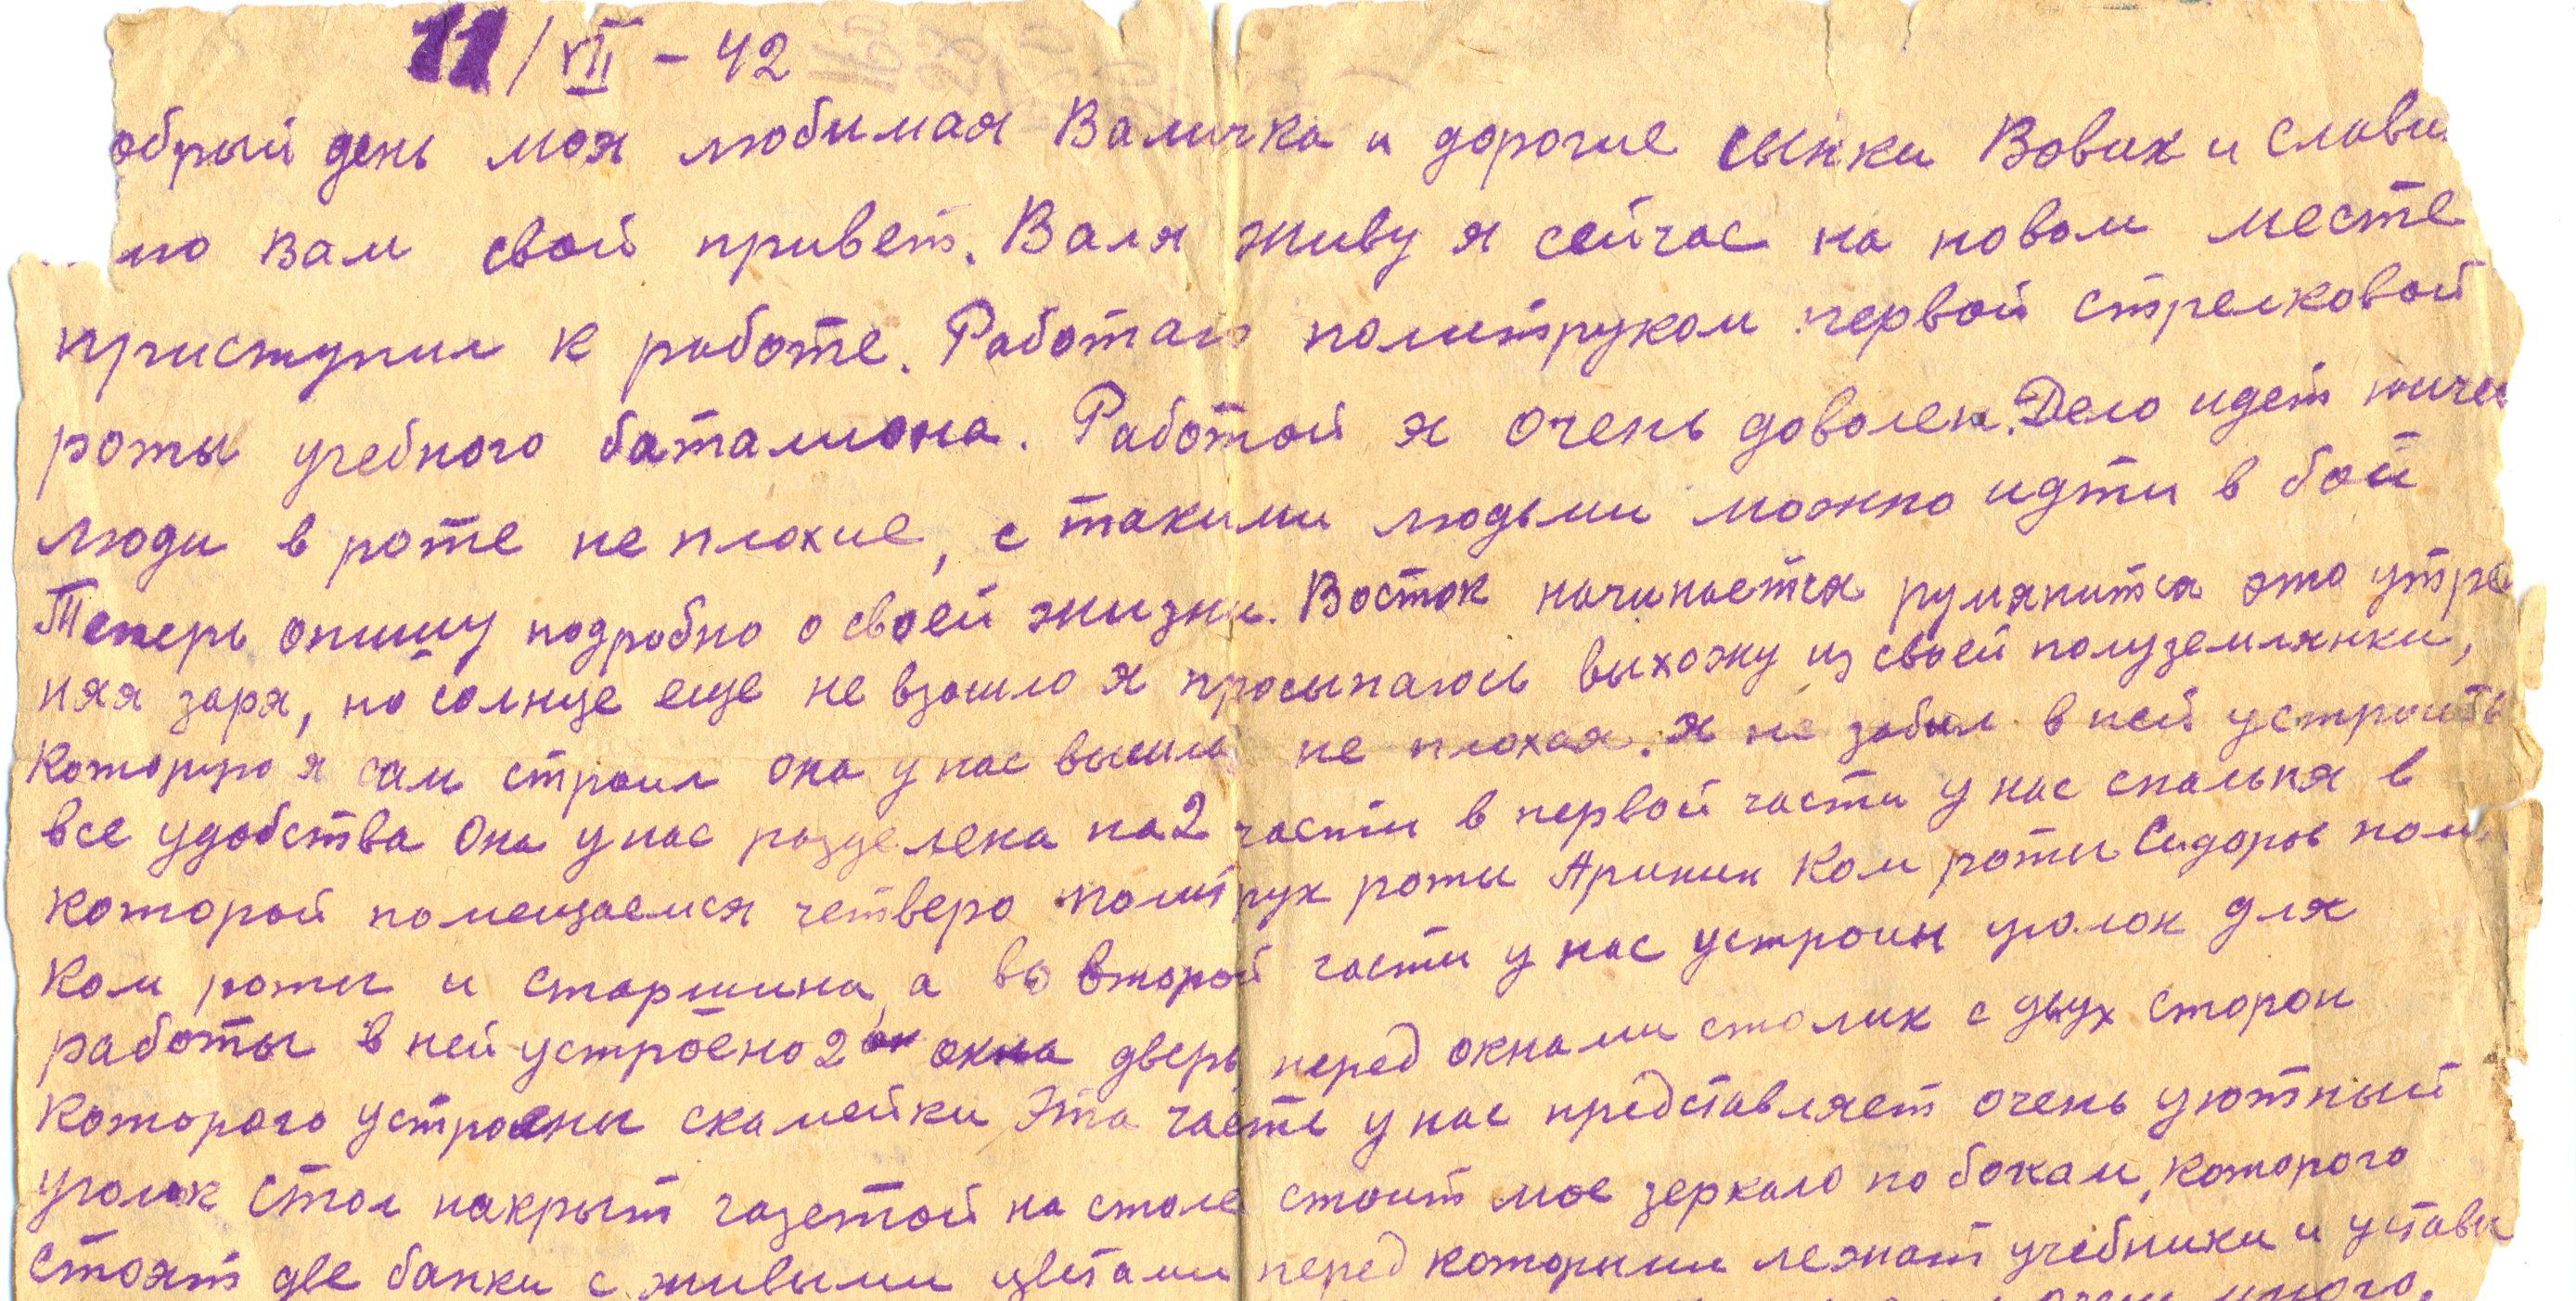 11/VII - 42
обрый день моя любимая Валичка и дорогие сынки Вовик и Слави
лю Вам свой привет. Валя живу я сейчас на новом месте
приступил к работе. Работаю политруком первой стрелковой
роты учебного баталиона. Работой я очень доволен. Дело идет ниче
люди в роте не плохие, с такими людьми можно идти в бой
Теперь опишу подробно о своей жизни. Восток начинается румянится это утре
няя заря, но солнце еще не взошло я просыпаюсь выхожу из своей полуземлянки,
которую я сам строил она у нас вышла не плохая. Я не забыл в ней устроить
все удобства Она у нас разделена на 2 части в первой части у нас спальня в
которой помещаемся четверо политрук роты Аринин Ком роты Сидоров пом
Ком роты и старшина, а во второй части у нас устроин уголок для
работы в ней устроено 2 окна дверь перед окнами столик с двух сторон
которого устроены скамейки Эта часть у нас представляет очень уютный
уголок Стол накрыт газетой на столе стоит мое зеркало по бокам, которого
стоят две банки с живыми цветами перед которыми лежат учебники и уставы
много.